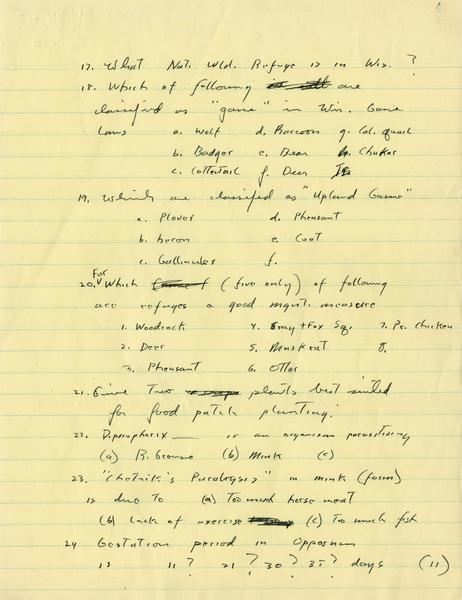 17. What Nat. Wld. Refuge is in Wis. ?
18. Which of following are
classified as "game" in Wis. Game
Laws a. Wolf d. Raccoon g. Cal. quail
b. Badger e. Bear h. Chukar
c. Cottontail f. Deer
19. Which are classified as "Upland Game"
a. Plover d. Pheasant
b. heron e. Coot
c. Gallinules f.
For
20. Which (five only) of following
are refuges a good mgmt. measure
1. Woodcock 4. Gray + Fox Sq. 7. Pr. Chicken
2. Deer 5. Muskrat 8.
3. Pheasant 6. Otter
21. Give Two plants best suited
for food patch planting.
22. is an organism parasitizing
(a) R. Grouse (b) Mink (c)
23. "Chastek's Paralysis" in mink (farm)
is due to (a) Too much horse meat
(b) Lack of exercise (c) Too much fish
24 Gestation period in Oppossum
is 11? 21? 30? 35? days (11)